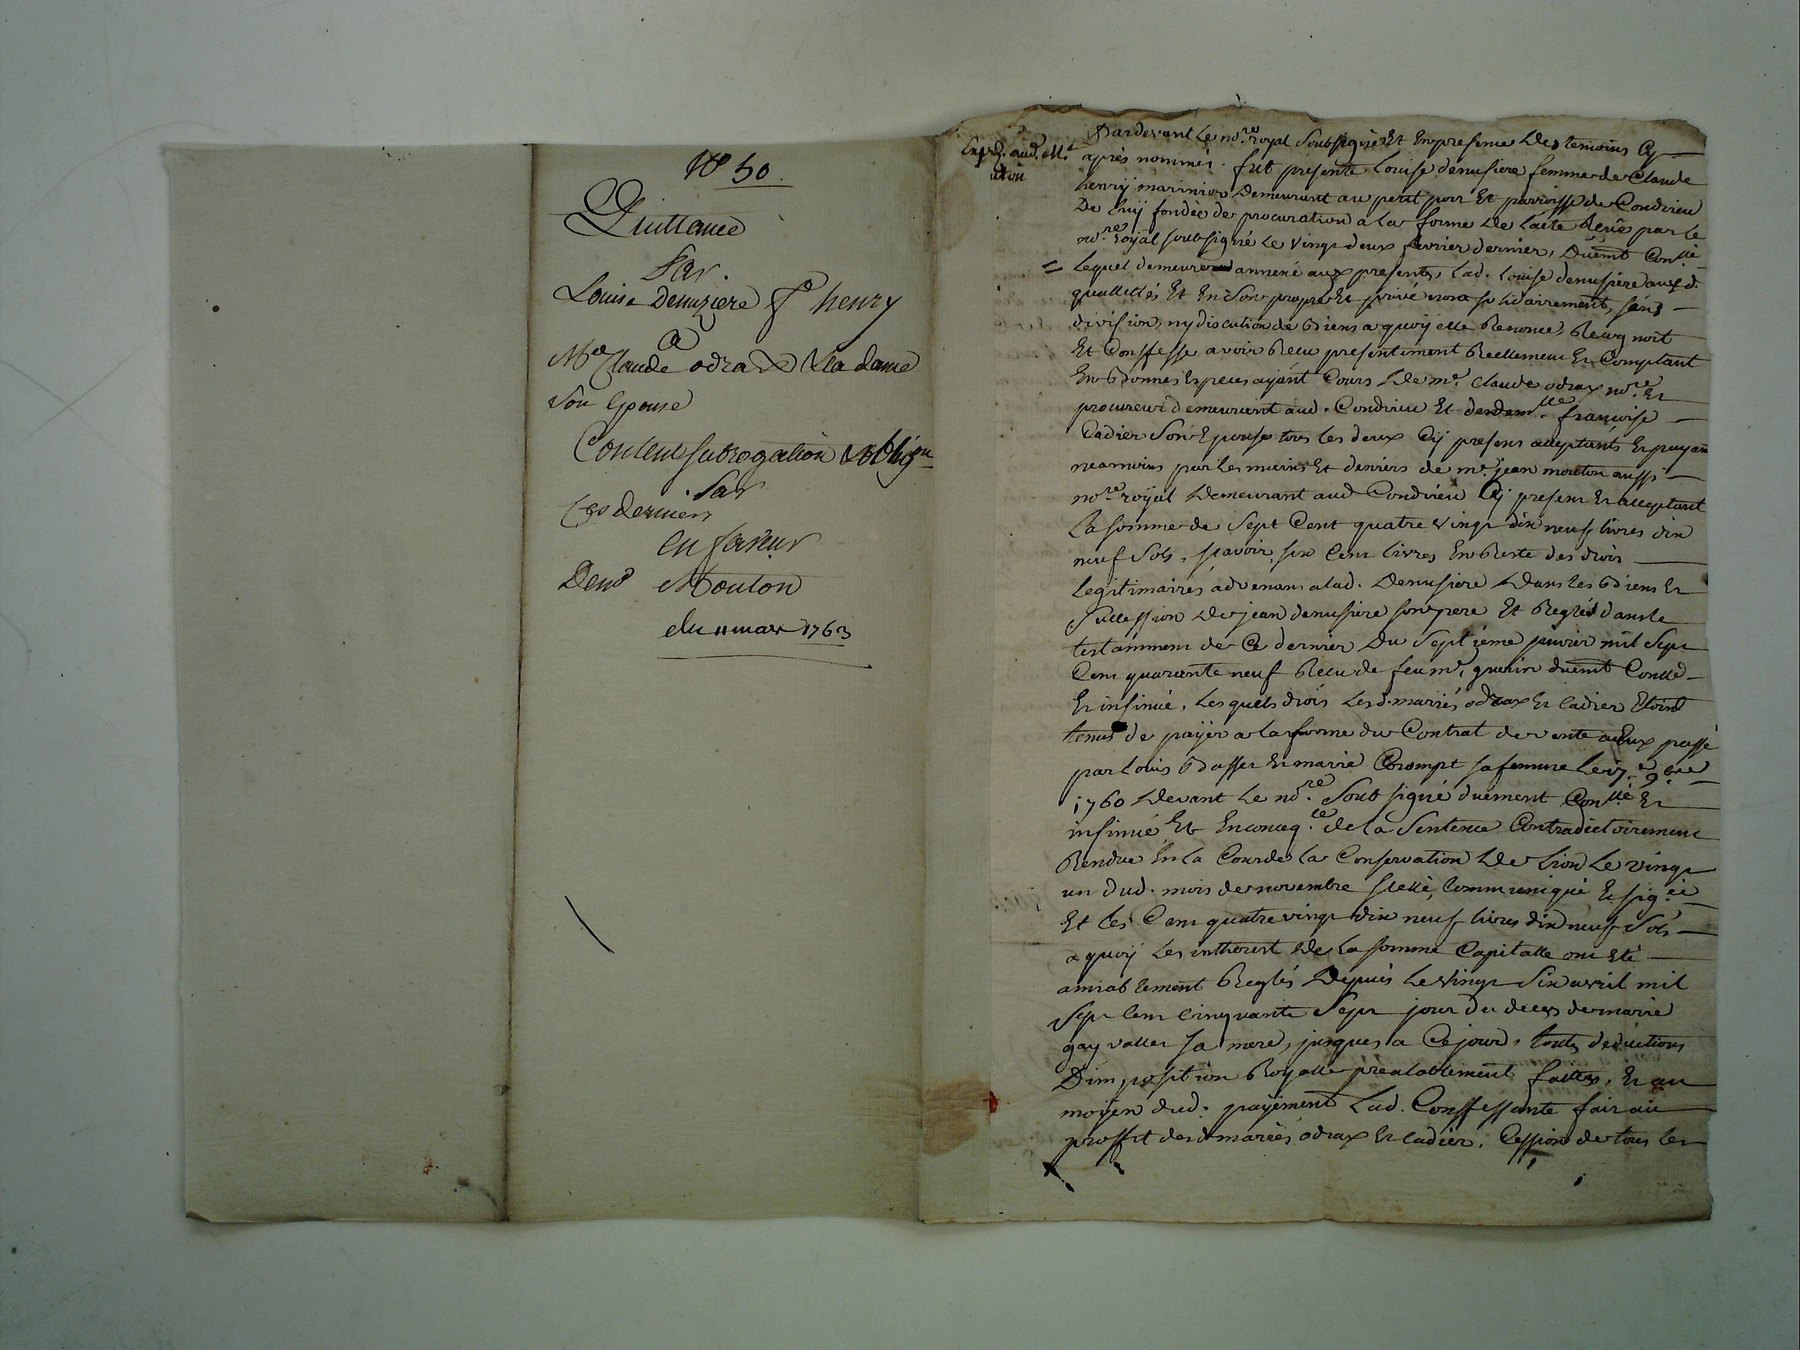 N° 50.
Quittance
Par.
Louise Denuziere fe henry
a
Me Claude odrax & la dame
son Epouse
Content subrogation & oblig.on
Par
Ces derniers
en faveur
Dem.e Mouton
du 11 mars 1763
Exp.é aud. M.e
uton
Pardevant le no.re royal soubsigné Et En presence Des temoins Cy
après nommés. fut présente Louise denusiere femme de Claude
henrÿ marinier Demeurant au petit port Et parroisse de Condrieu
De luÿ fondée de procuration a la forme De l'acte Reçû par le
no.re roÿal soubsigné le vingt deux fevrier dernier, Duëmt Con.llé
Lequel demeurera annexé aux presentes, lad. Louise denusiere aux d.
quallittés Et En Son propre Et privé nom solidairrement, sans
division, ny discution de Biens a quoÿ elle Renonce, Recognoit
Et Conffesse avoir Recu presentement Reellement Et Comptant
En Bonnes Especes aÿant Cours De me. Claude odrax no.re Et
procureur demeurant aud. Condrieu Et de dem.lle françoise
Cadier Son Epouse tous les deux Cÿ presens acceptants Et payant
neamoins par les mains Et deniers de me. jean mouton aussi
no.re roÿal Demeurant aud Condrieu Cÿ present Et acceptant
La somme de Sept Cent quatre vingt dix neuf livres dix
neuf Sols, sçavoir, six Cent livres En Reste des droits
Legitimaires advenans a lad. Denusiere Dans les Biens Et
Succession De jean denusiere son pere Et Reglés dans le
testamment de Ce dernier Du Septieme janvier mil Sept
Cent quarante neuf Recu de feu me. guerin duëmt Con.llé
Et insinué, Les quels droits Les d. mariés odrax Et Cadier Etoint
tenus de payër a la forme du Contrat de vente a Eux passé
par Louis Basset Et marie Corompt sa femme Le 17.e 9.bre
1760 Devant Le no.re Soubsigné duement Con.llé Et
insinué Et En conseq.ce de la Sentence Contradictoirement
Rendue En la Cour de la Conservation De Lion Le vingt
un dud. mois de novembre Scellé, Communiqué Et sig.éé
Et les Cent quatre vingt dix neuf livres dix neuf Sols
a quoÿ Les intherest De La somme Capitalle ont Eté
amiablement Reglés Depuis Le vingt Six avril mil
Sept Cent Cinquante Sept jour du deces de marie
gay vallet sa mere, jusques a Ce jour, touttes deductions
D'imposition Royalle préalablement faittes, Et au
moÿen dud. payëment Lad. Conffessante fait au
proffit desd mariés odrax Et Cadier, Cession de tous les